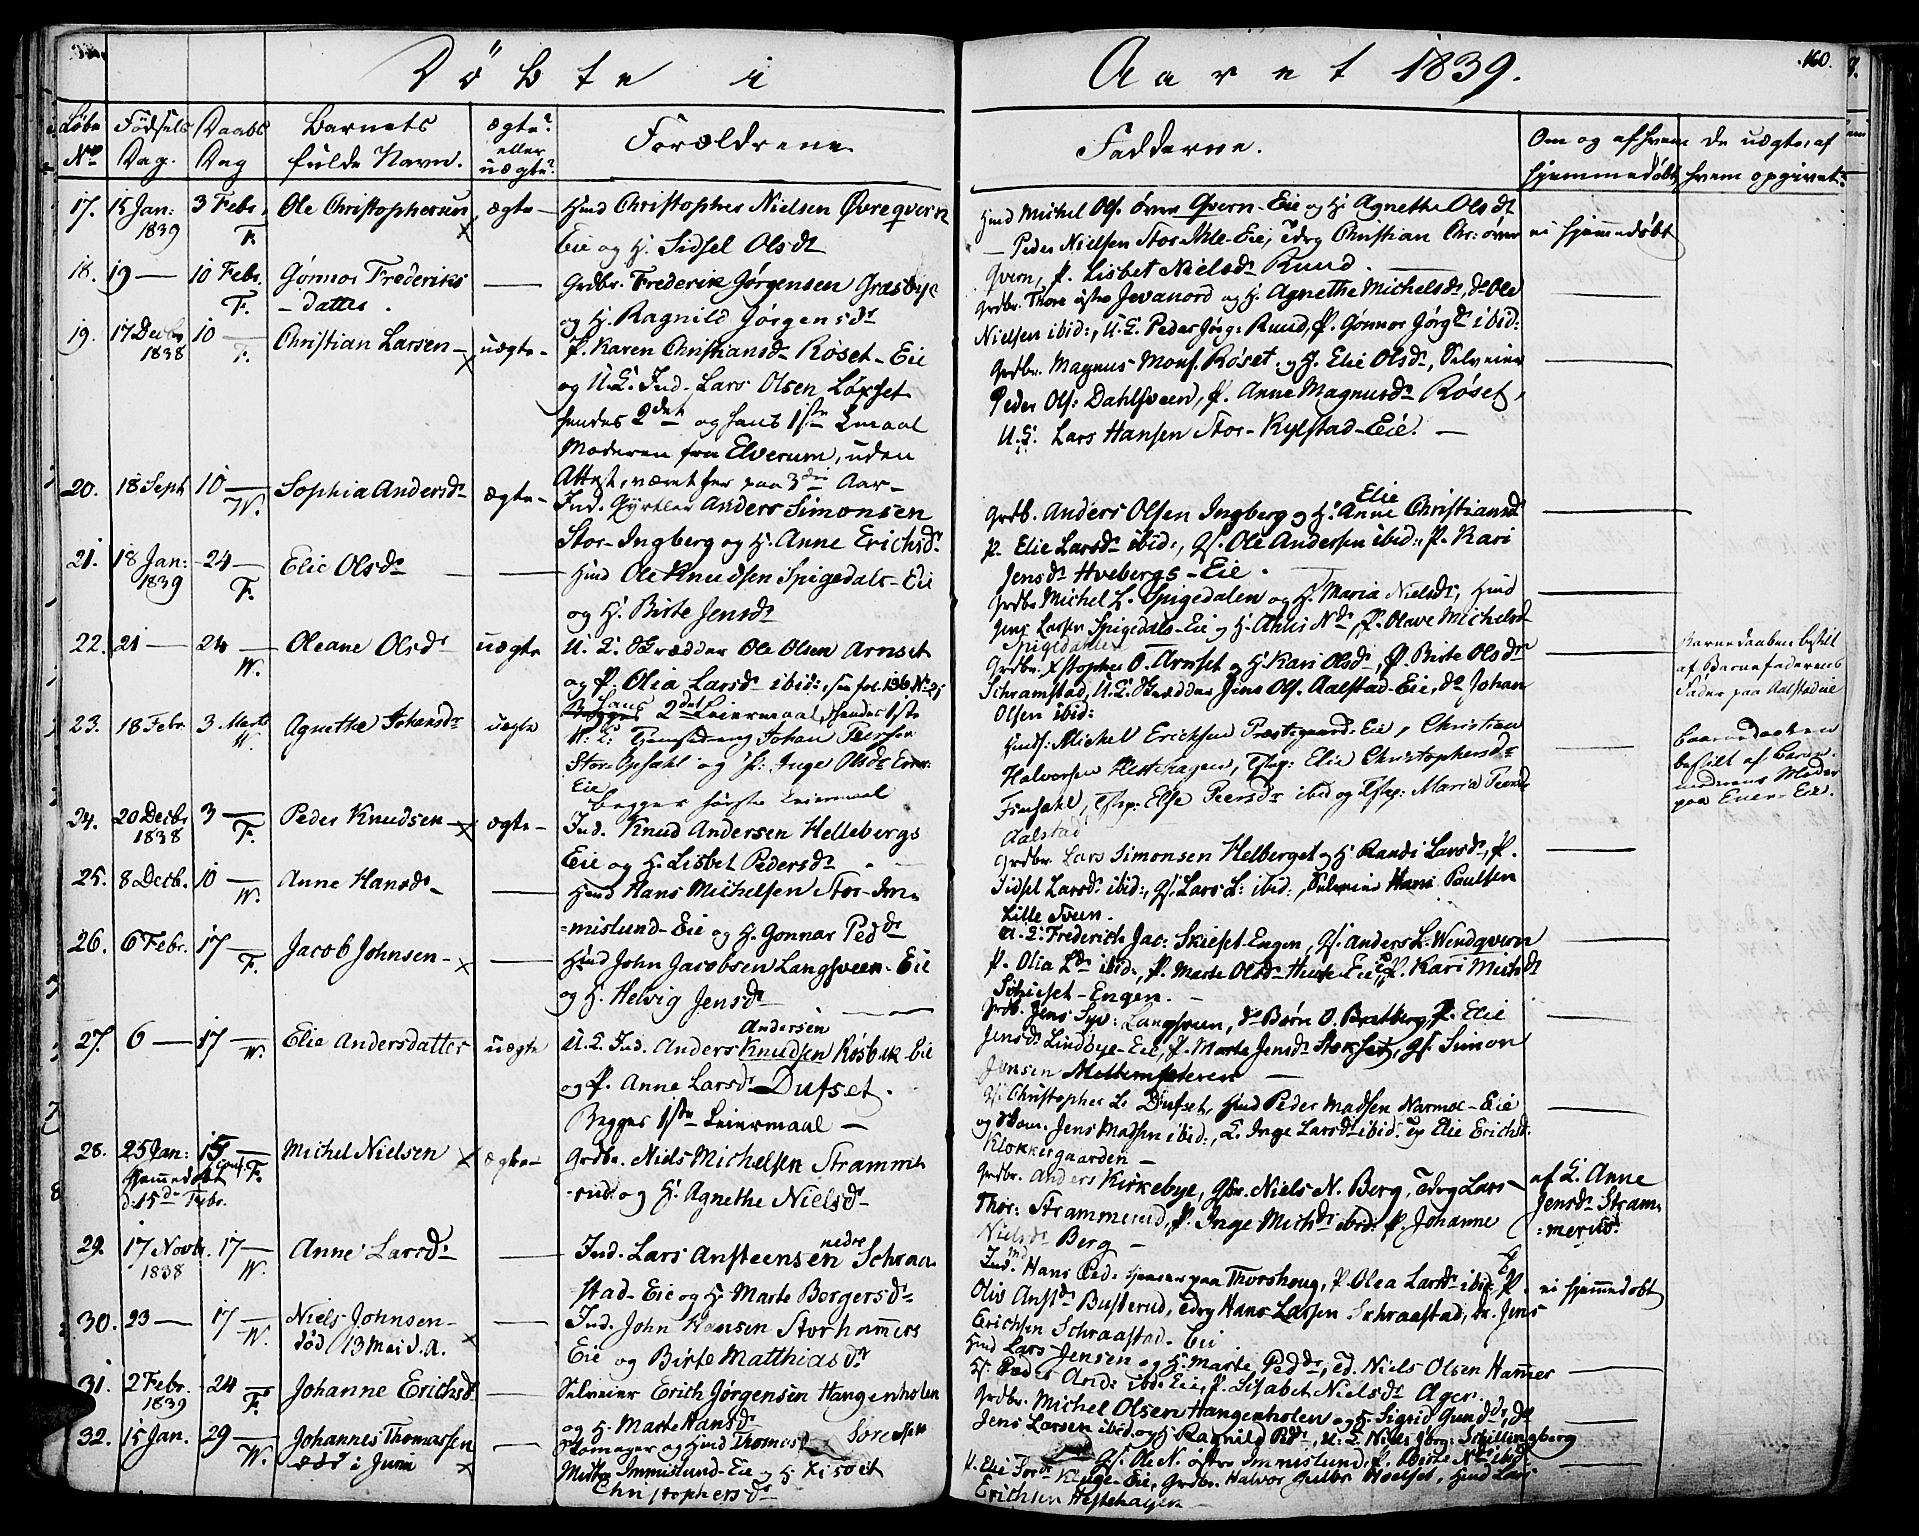 Döbte i Aaret 1839. 160.
Löbe No Födsels Dag. Daabs Dag Barnets fulde Navn. ægte? eller uægte? Forældrene Fadderne. Om og af hvem hjemmedöbt De uægte, af hvem opgivet.
17. 15 Jan: 1839 3 Febr. F. Ole Christophersen ægte
Huusmd Christopher Nielsen Övreqvern
Eie og H. Sidsel Olsdr
Michel Ols. övre Qvern-Eie og H. Agnethe Olsdr
Peder Nielsen Stor Ihle-Eie, Christian Chr: övre
Qvern, P. Lisbet Nielsdr Ruud.
ei hjemmedöbt
18. 19 — 10 Febr. F. Gönnor Frederiks
-datter.
Grdbr. Frederik Jörgensen Græsbye
og H. Ragnild Jörgensdr
Grdbr. Thore östre Jevanord og H. Agnethe Michelsdr, Ole
Nielsen ibid:, U. K. Peder Jörg: Ruud, P. Gönnor Jörgdr ibid:
19. 17 Decbr 1838 10 — F. Christian Larsen uægte
P. Karen Christiansdr Röset-Eie
og U. K. Ind. Lars Olsen Löxset
hendes 2det og hans 1ste Lmaal
Moderen fra Elverum, uden
Attest, været her paa 3die Aar
Grdbr. Magnus Mons. Röset og H. Elie Olsdr, Selveier
Peder Ols: Dahlsveen, P. Anne Magnusdr Röset,
U. K. Lars Hansen Stor-Rylstad-Eie.
20. 18 Sept 10 — W. Sophia Andersdr ægte
Ind. Gyrtler Anders Simonsen
Stor-Ingberg og H. Anne Erichsdr
Grdb. Anders Olsen Ingberg og H. Anne Elie Christiansdr
P. Elie Larsdr ibid:, Ole Andersen ibid:, P. Kari
Jensdr Hvebergs-Eie.
21. 18 Jan: 1839 24 — F. Elie Olsdr
Huusmd Ole Knudsen Spigedals-Eie
og H. Birte Jensdr
Grdbr Michel L. Spigedalen og H. Maria Nielsdr,
Jens Larsen Spigedals-Eie og H. Ndr, P. Olave Michelsdr
Spigedalen
22. 21 — 24 — W. Oleane Olsdr uægte
U. K. Skrædder Ole Olsen Arnset
og P. Olia Larsdr ibid:, see fol. 136 No 25
hans 2det Leiermaal, hendes 1ste
Grdbr. Xstopher O. Arnset og H. Kari Olsdr, P. Birte Olsdr
Schramstad, U. K. Skrædder Jens Ols. Aalstad-Eie, do Johan
Olsen ibid:
Barnedaaben bestilt
af Barnefaderens
Fader paa Aalstadeie
23. 18 Febr. 3 Marts W. Agnethe Johansdr uægte
U. K. Tjenestdreng Johan Peersen
Stor-Opsahl og P: Inge Olsdr
Eie
begges förste Leiermaal
Michel Erichsen Præstegaards-Eie, Christian
Halvorsen Hestehagen, Elie Christophersdr
Finsahl, Else Peersdr ibid og Maria
Aalstad
Barnedaaben
bestilt af Barne-
moderens Moder
paa Eie.
24. 20 Decbr 1838 3 — F. Peder Knudsen ægte
Ind. Knud Andersen Hellebergs
Eie og H. Lisbet Pedersdr
Grdbr Lars Simonsen Helberget og H. Randi Larsdr, P.
Sidsel Larsdr ibid:, Lars L: ibid:, Selveier Hans Poulsen
Lille Sveen.
25. 8 Decb. 10 — W. Anne Hansdr
Huusmd Hans Michelsen Stor-Im-
=mislund-Eie og H. Gonnar Peddr
U. K. Frederich Jac: Skieset-Engen, Anders L. Wendqvern
P. Olia Ldr ibid:, P. Marte Olsdr Eie, P. Kari Michdr
Skieset-Engen.
26. 6 Febr. 17 — F. Jacob Johnsen
Huusmd John Jacobsen Langsveen-Eie
og H. Helvig Jensdr
Grdb. Jens Syv: Langsveen, do Börn O. Bratberg, P. Elie
Jensdr Lindbye-Eie, P. Marte Jensdr Stokset, Simon
Jensen
27. 6 — 17 — W. Elie Andersdatter uægte
U. K. Ind. Anders Andersen Knudsen Eie
og P. Anne Larsdr Dufset.
Begges 1ste Leiermaal
Christopher L. Dufset, Huusmd Peder Madsen Narmoe-Eie
og Jens Madsen ibid:, K. Inge Larsdr ibid. Elie Erichsdr
Klokkergaarden
28. 25 Jan: 15 — F. Michel Nielsen ægte
hjemmedöbt Conf.
d. 15de Febr.
Grdbr. Niels Michelsen Stramme-
-rud og H. Agnethe Nielsdr
Grdbr. Anders Kirkebye, Niels N. Berg, Lars
Thor: Strammerud, P. Inge Michdr ibid: P. Johanne
Nielsdr Berg
af K. Anne
Jensdr Stram-
=merud.
29. 17 Novb. 1838 17 — W. Anne Larsdr
Ind. Lars Ansteensen nedre Schraa-
stad-Eie og H. Marte Börgersdr
Ind. Hans Ped: paa Thorshoug, P. Olea Larsdr ibid: P.
Olis Anstdr Busterud, Hans Larsen Schraastad, Jens
Erichsen Schraastad-Eie
ei hjemmedöbt
30. 23 — 17 — W. Niels Johnsen
död 13 Mai d. A.
Ind. John Hansen Storhamers
Eie og Birte Matthiasdr
Huusmd Lars Jensen og H. Marte Peddr, Niels Olsen Hammer
Peder And: ibid: Eie, P. Lisabet Nielsdr Ager.
31. 2 Febr. 1839 24 — F. Johanne Erichsdr
Selveier Erich Jörgensen Hangenholen
og H. Marte Hansdr
Grdbr. Michel Olsen Hangenholen og H. Sigrid Gundr,
Jens Larsen ibid og H. Ragnild Peddr, U. K. Niels Jörg: Schillingsberg
32. 15 Jan. 29 — W. Johannes Thomassen
död i Juni
Skomager og Huusmd Thomas Sörensen
Mistre Immislund-Eie og H.
Christophersdr
Ole N. östre Immislund, P. Birte Ndr ibid
Kluge-Eie, Grdbr. Halvor, Huusmd Lars
Erichsen Hestehagen